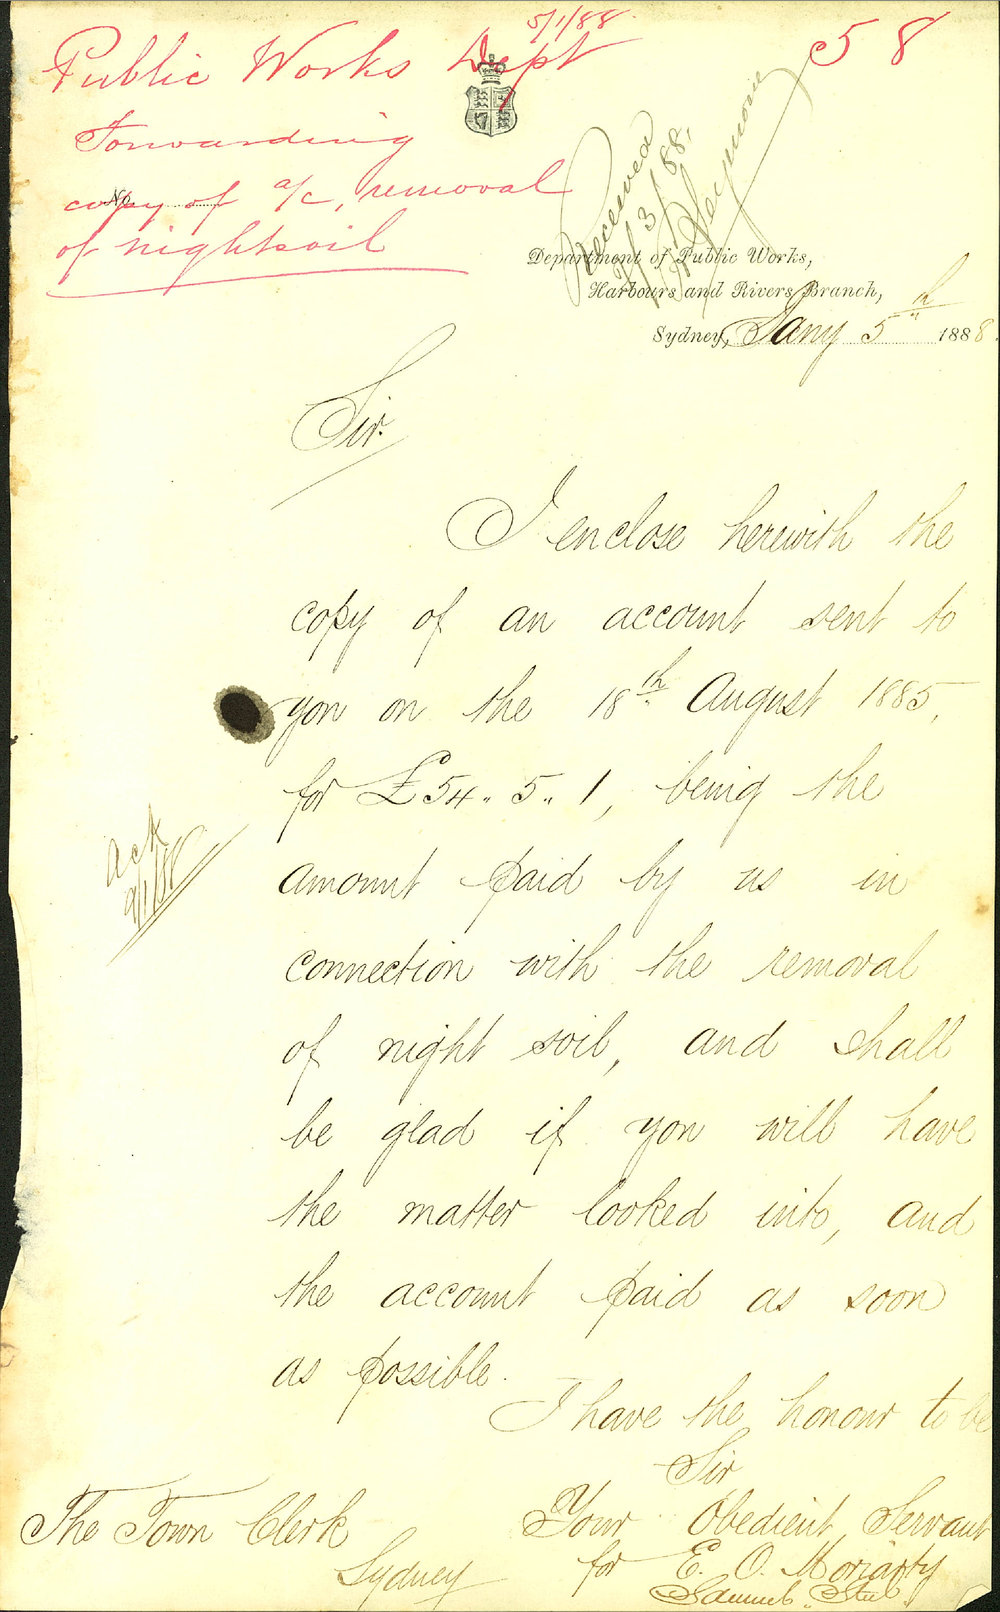 5/1/88
58
Public Works Dept
Forwarding
copy of a/c, removal
of nightsoil
No.
Received
3/88.
Department of Public Works,
Harbours and Rivers Branch,
Sydney, Jany 5th 1888.
Sir.
I enclose herewith the
copy of an account sent to
you on the 18th August 1885,
for £54.. 5.. 1, being the
Ack
9/1/88
amount paid by us in
connection with the removal
of night soil, and shall
be glad if you will have
the matter looked into, and
the account paid as soon
as possible.
I have the honour to be
Sir
Your Obedient Servant
for E. O. Moriarty
Samuel
The Town Clerk
Sydney